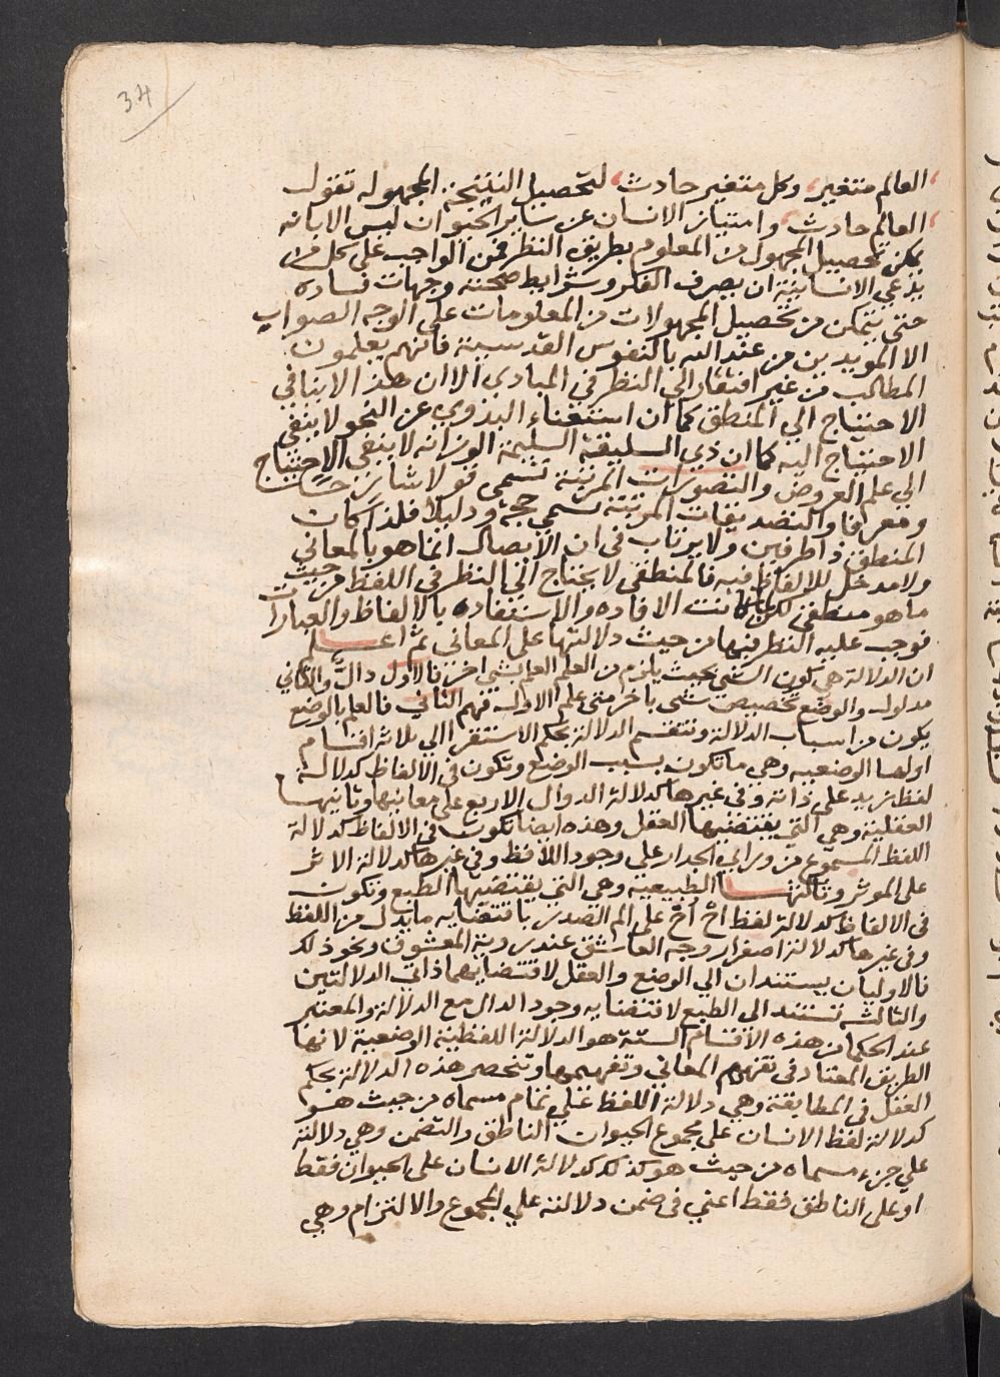 34
العالم متغير، وكل متغير حادث، لتحصيل النتيجة المجهوله تقول
العالم حادث، وامتياز الانسان عن ساير الحيوان ليس الا بانه
يمكن تحصيل المجهول من المعلوم بطريق النظر فمن الواجب على كل من
يدعي الانسانية ان يعرف الفكر وشرايط صحته وجهات فساده
حتى يتمكن من تحصيل المجهولات من المعلومات على الوجه الصواب
الا المويدين من عند الله بالنفوس القدسية فانهم يعلمون
المطالب من غير افتقار الي النظر في المبادي الا ان هذا لا ينافي
الاحتياج الي المنطق كما ان استغناء البدوي عن النحو لا ينفي
الاحتياج اليه كما ان ذي السليقة السليمة الوزانه لا ينفي الاحتياج
الي علم العروض والتصورات المرتبة تسمى قولا شارحا
ومعرفا والتصديقات المرتبة تسمي حجة ودليلا فلذا كان
المنطق ذا طرفين ولا يرتاب في ان الايصال انما هو بالمعاني
ولا مدخل للالفاظ فيه فالمنطقي لا يحتاج الي النظر في اللفظ من حيث
ما هو منطقي لكن لما كانت الافاده والاستفاده بالالفاظ والعبارات
فوجب عليه النظر فيها من حيث دلالتها على المعاني ثم اعلم
ان الدلالة هي كون الشي بحيث يلزم من العلم العلم بشي اخر فالاول دال والثاني
مدلول والوضع تخصيص شي باخر متى علم الاول فهم الثاني فالعلم بالوضع
يكون من اسباب الدلالة وتنقسم الدلالة بحكم الاستقرا الي ثلاثه اقسام
اولها الوضعيه وهي ما تكون بسبب الوضع وتكون في الالفاظ كدلالة
لفظ زيد على ذاته وفي غيرها كدلالة الدوال الاربع على معانيها وثانيها
العقلية وهي التي يقتضيها العقل وهذه ايضا تكون في الالفاظ كدلالة
اللفظ المسموع من وراي الجدار على وجود اللافظ وفي غيرها كدلالة الاثر
على الموثر وثالثها الطبيعية وهي التي يقتضيها الطبع وتكون
في الالفاظ كدلالة لفظ اخ اخ على الم الصدر باقتضايه ما يدل من اللفظ
وفي غيرها كدلالة اصفرار وجه العاشق عند روية المعشوق ونحو ذلك
فالاوليان يستندان الي الوضع والعقل لاقتضايهما ذاتي الدلالتين
والثالثه تستند الى الطبع لاقتضايه وجود الدال مع الدلالة والمعتبر
عند الحكما من هذه الاقسام الستة هو الدلالة اللفظية الوضعية لانها
الطريق المعتاد في تفهم المعاني وتفهيمها وتنحصر هذه الدلالة بحكم
العقل في المطابقة وهي دلالة اللفظ على تمام مسماه من حيث هو
كدلالة لفظ الانسان على مجموع الحيوان الناطق والتضمن وهي دلالته
على جزء مسماه من حيث هو كذلك كدلالة الانسان على الحيوان فقط
او على الناطق فقط اعني في ضمن دلالته علي المجموع والالتزام وهي